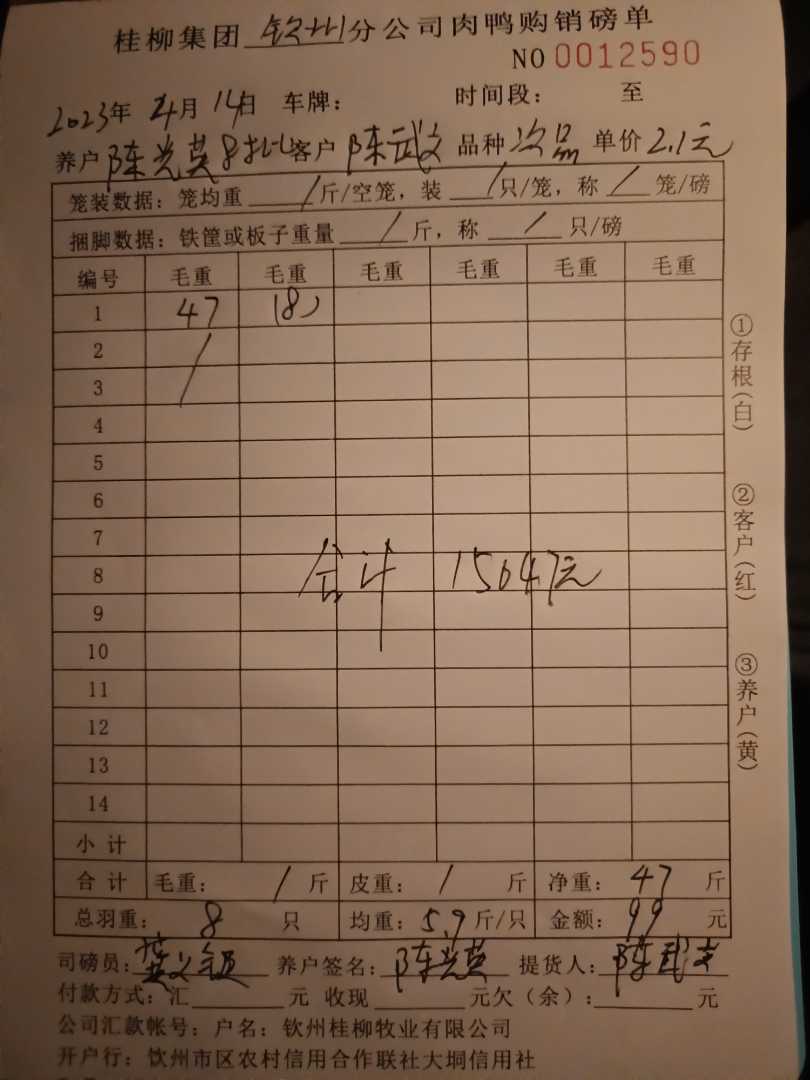 桂柳集团 钦州 分公司肉鸭购销磅单
NO 0012590
2023年 4月 14日 车牌： 时间段： 至
养户 陈光英8批 客户 陈武文 品种 次品 单价 2.1元
笼装数据：笼均重 / 斤/空笼，装 / 只/笼，称 / 笼/磅
捆脚数据：铁筐或板子重量 / 斤，称 / 只/磅
编号 毛重 毛重 毛重 毛重 毛重 毛重
1 47 (8)
2 /
3
4
5
6
7
8 合计 15047元
9
10
11
12
13
14
小计
合计 毛重： / 斤 皮重： / 斤 净重： 47 斤
总羽重： 8 只 均重： 5.9 斤/只 金额： 99 元
司磅员： 养户签名：陈光英 提货人：陈武文
付款方式：汇 元 收现 元欠（余）： 元
公司汇款帐号：户名：钦州桂柳牧业有限公司
开户行：钦州市区农村信用合作联社大垌信用社
①存根（白）
②客户（红）
③养户（黄）